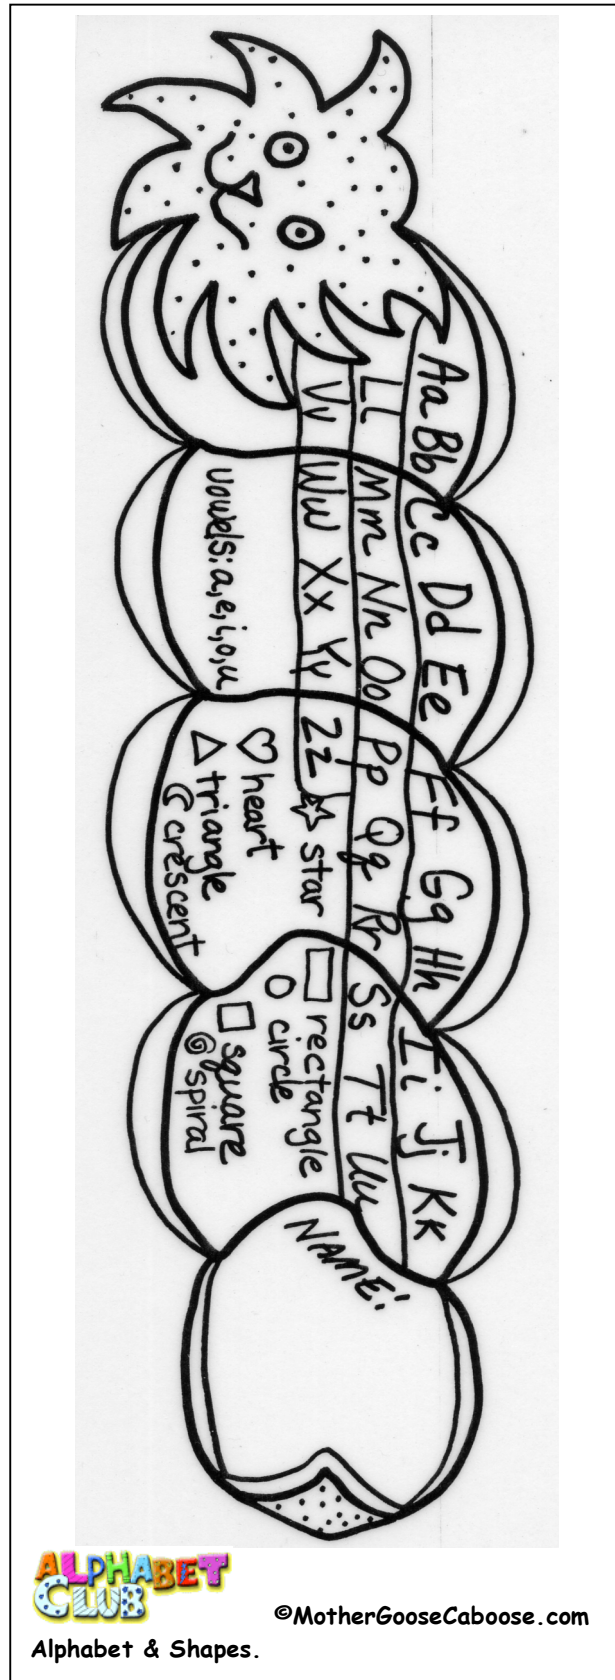 Aa Bb Cc Dd Ee Ff Gg Hh Ii Jj Kk
Ll Mm Nn Oo Pp Qq Rr Ss Tt Uu
Vv Ww Xx Yy Zz
star
heart
triangle
crescent
vowels: a, e, i, o, u
rectangle
circle
square
spiral
NAME:
ALPHABET
CLUB
©MotherGooseCaboose.com
Alphabet & Shapes.